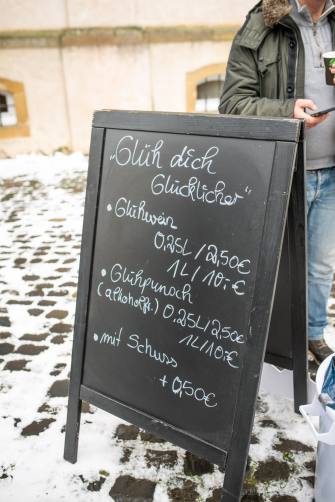 „Glüh dich
Glücklicher“
• Glühwein
0,25L / 2,50€
1L / 10,-€
• Glühpunsch
(alkoholfr.) 0,25L / 2,50€
1L / 10,-€
• mit Schuss
+ 0,50€